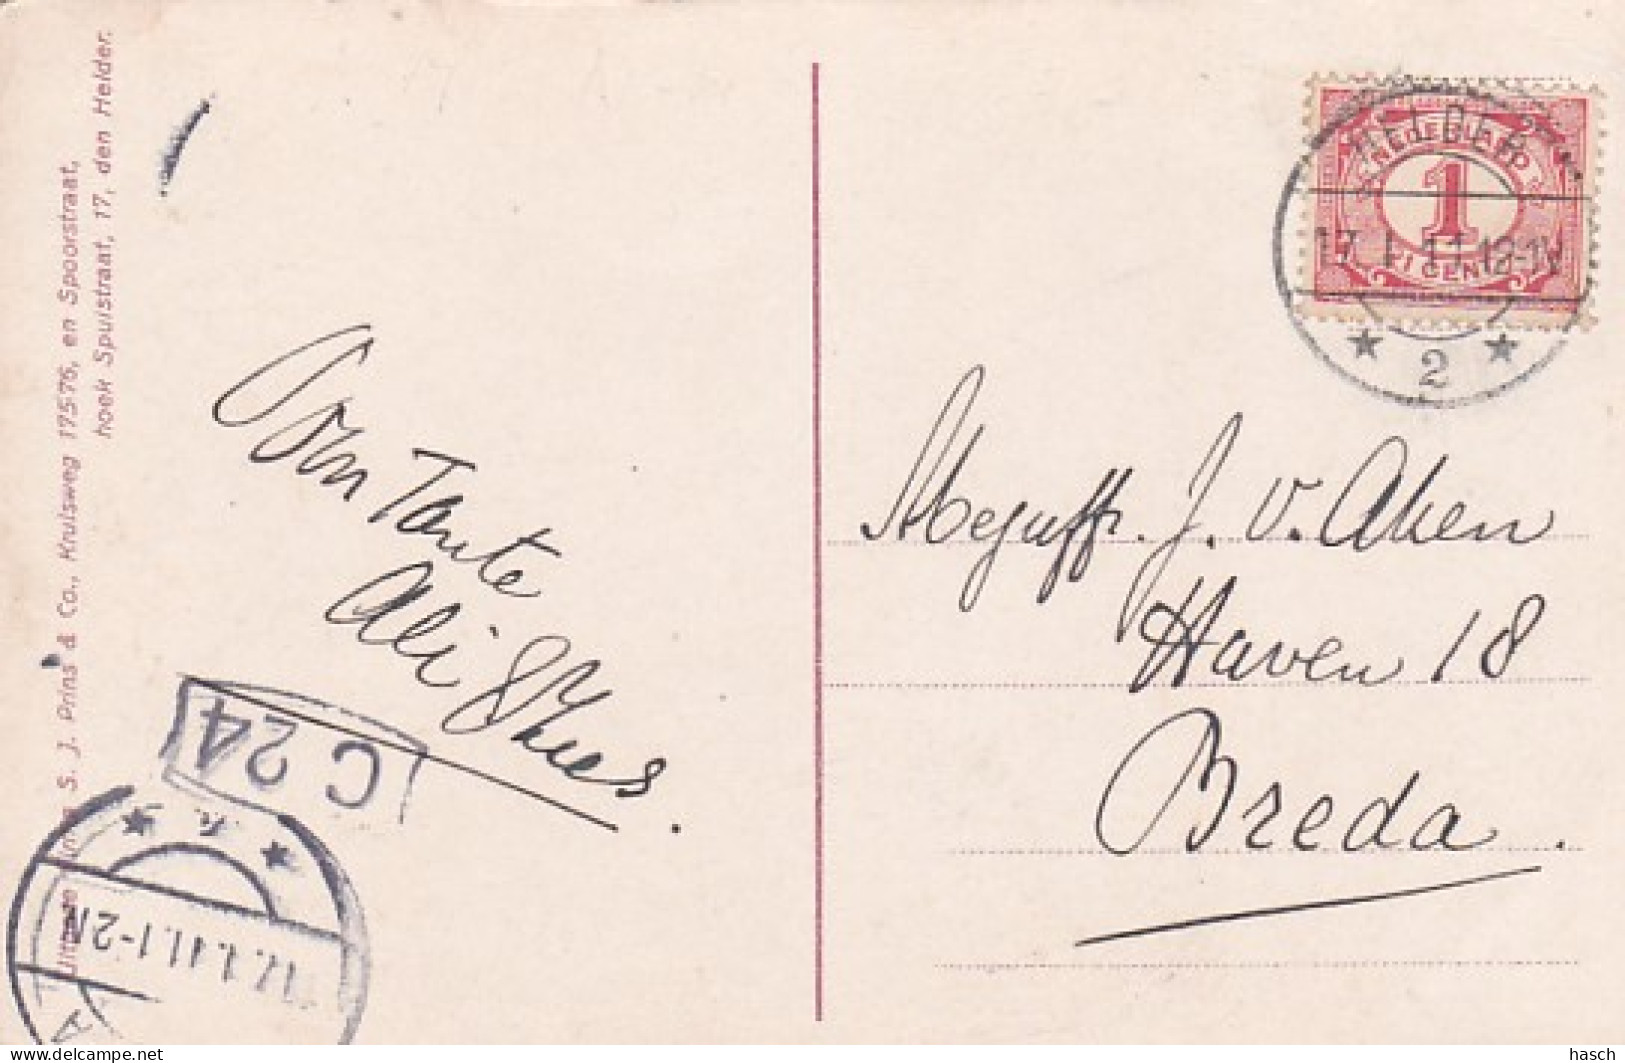 S. J. Prins & Co., Kruisweg 175/76, en Spoorstraat,
hoek Spuistraat, 17, den Helder.
Van Tante
Ali &
C 24
17.1.11.1-2N
HELDER
NEDERLAND
1
CENT
17.1.11.12-1V
2
Mejuffr. J. v. Aken
Haven 18
Breda.
delcampe.net
hasch